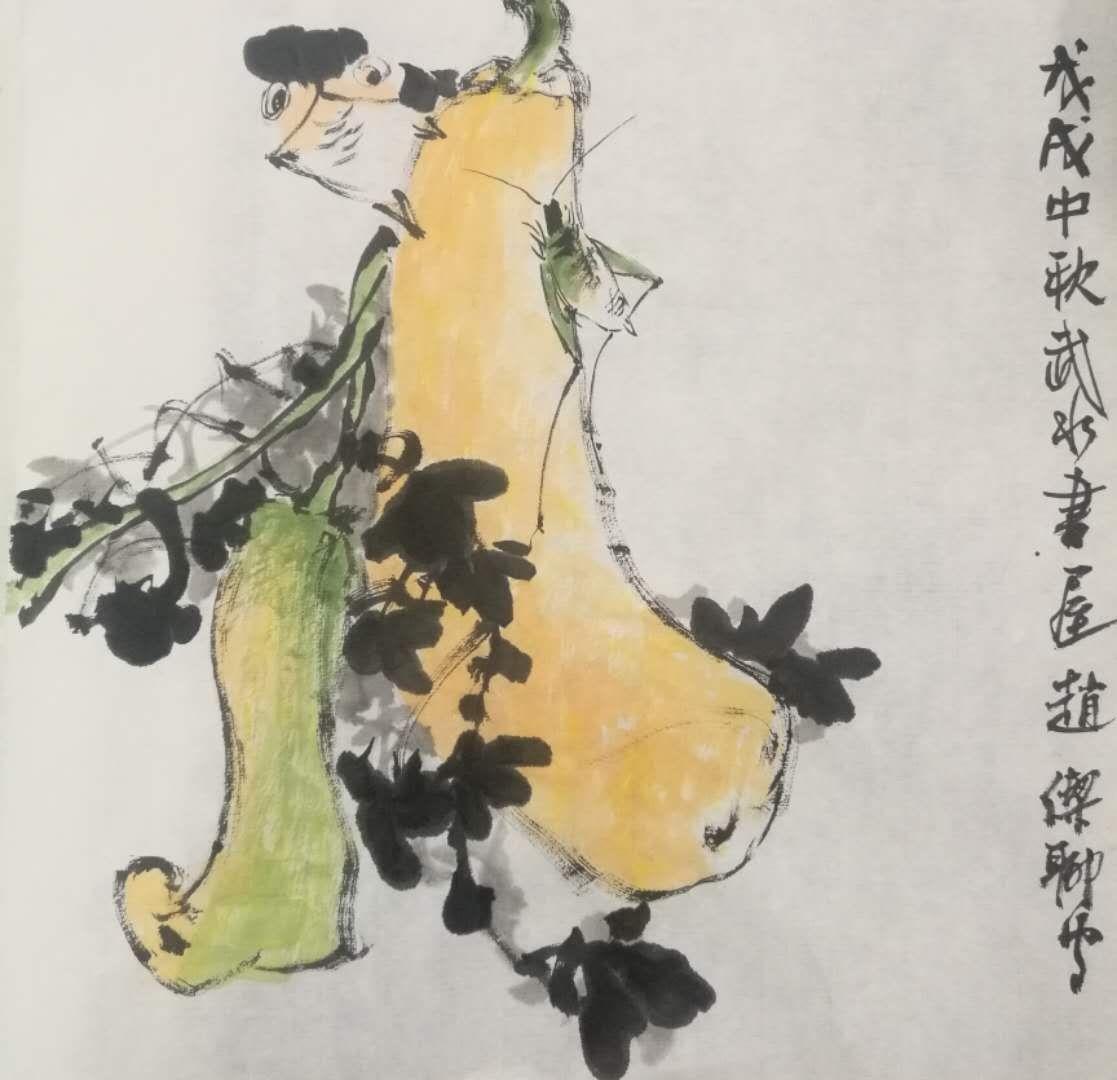 戊戌中秋武水書屋趙傑聊写